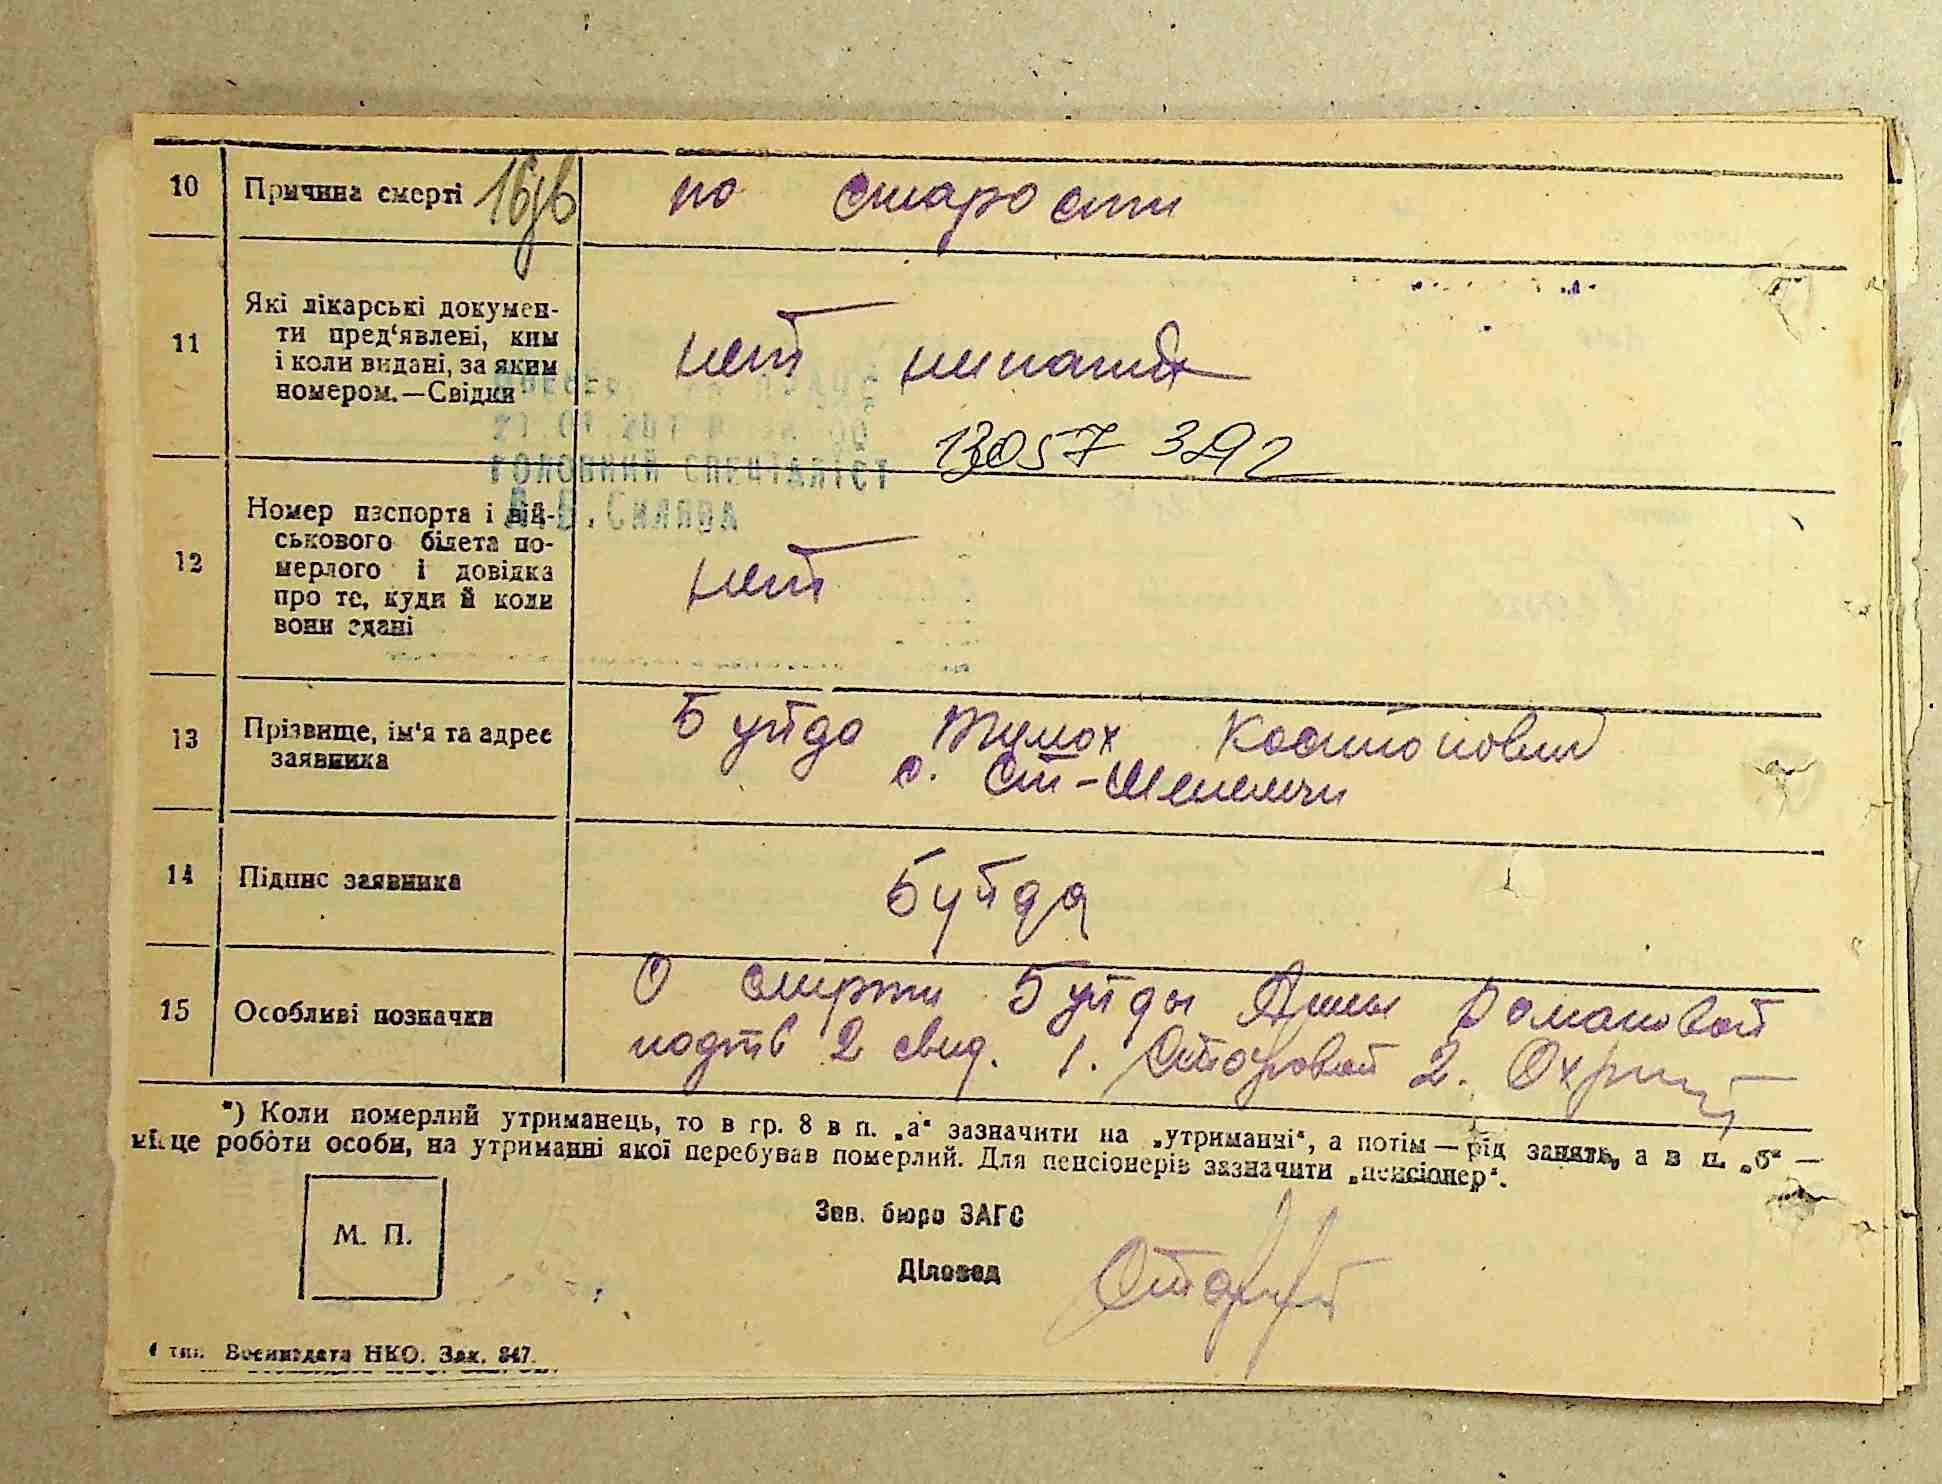 10 Причина смерті 16/в по старости
11 Які лікарські докумен-
ти пред'явлені, ким
і коли видані, за яким
номером.—Свідки
нет
13057 392
ГОЛОВНИЙ СПЕЦІАЛІСТ
12 Номер паспорта і вій-
ськового білета по-
мерлого і довідка
про те, куди й коли
вони здані
нет
13 Прізвище, ім'я та адрес
заявника
Буйда Тимох
с. Ст-
14 Підпис заявника Буйда
15 Особливі позначки О смерти Буйды Анны Романовой
подтв 2 свид. 1. 2.
*) Коли померлий утриманець, то в гр. 8 в п. „а“ зазначити на „утриманні“, а потім—рід занять, а в п. „б“—
місце роботи особи, на утриманні якої перебував померлий. Для пенсіонерів зазначити „пенсіонер“.
М. П.
Зав. бюро ЗАГС
Діловод
тип. Воениздата НКО. Зак. 847.